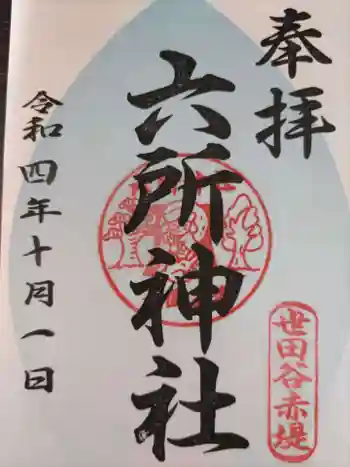 奉拝
世田谷赤堤
六所神社
令和四年十月一日